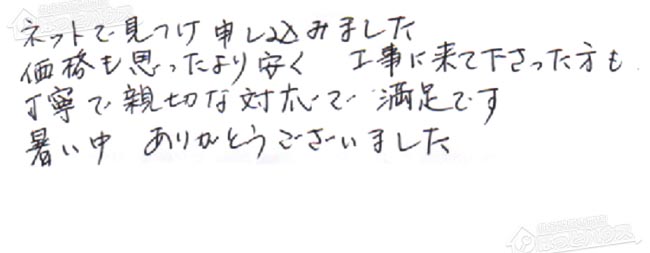 ネットで見つけ申し込みました
価格も思ったより安く 工事に来て下さった方も
丁寧で親切な対応で 満足です
暑い中 ありがとうございました